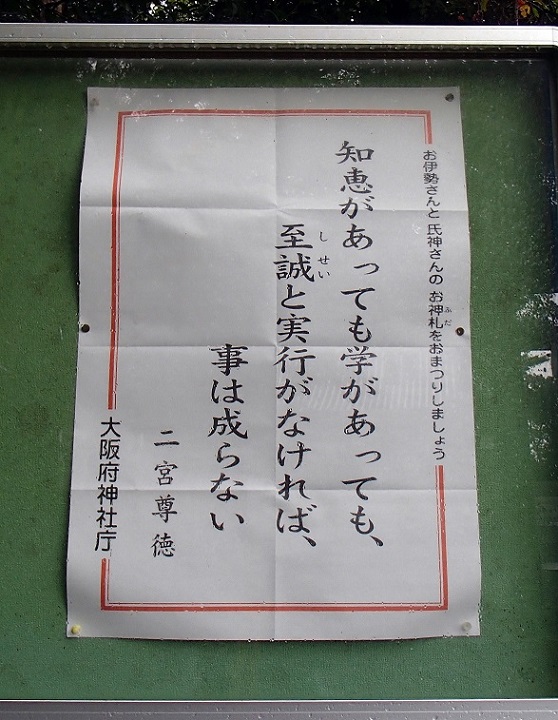 お伊勢さんと 氏神さんの お神札をおまつりしましょう
知恵があっても学があっても、
至誠と実行がなければ、
事は成らない
二宮尊徳
大阪府神社庁